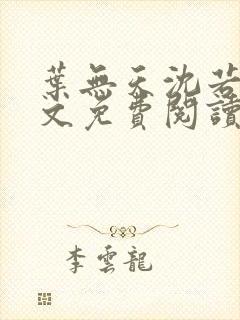 葉無天沈若
文免費閱讀
李雲龍